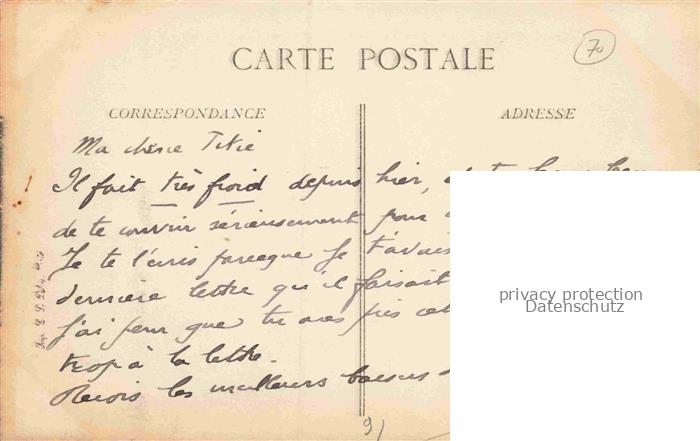 70
CARTE POSTALE
CORRESPONDANCE
ADRESSE
Ma chérie Titie
Il fait très froid depuis hier,
de te couvrir sérieusement pour
Je te l'écris parceque je t'avais
dernière lettre qu'il faisait
J'ai peur que tu aies pris cel
trop à la lettre.
Reçois les meilleurs baisers
privacy protection
Datenschutz